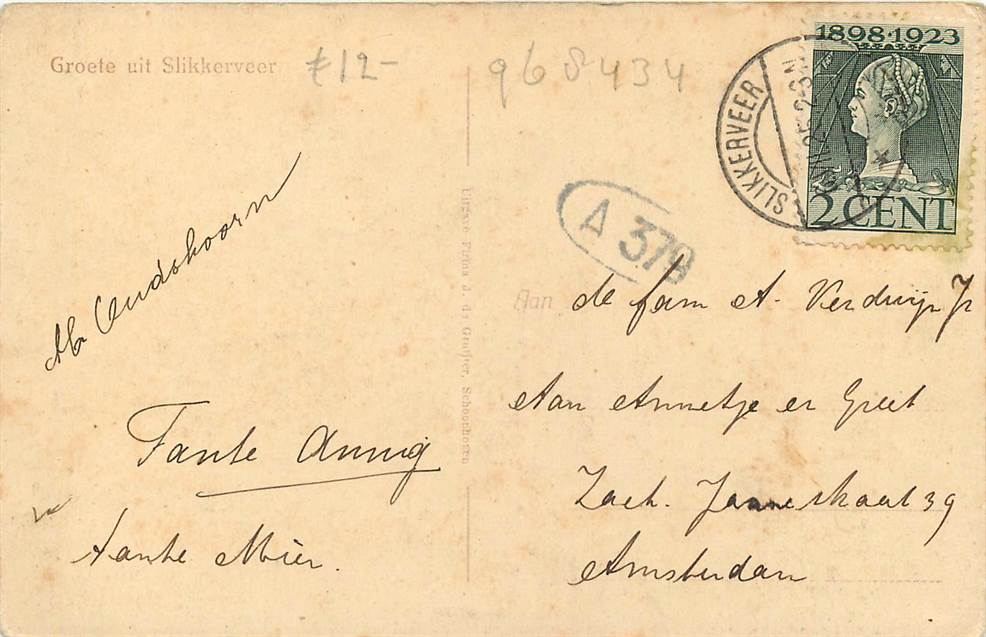 Groete uit Slikkerveer
£12-
968434
1898·1923
2 CENT
SLIKKERVEER
A 379
Uitgave Firma J. de Gruijter, Schoonhoven
Aan
de fam A. Verdwijn Jr
Aan Annetje en Greet
Zach. Janse straat 39
Amsterdam
Ab Oudshoorn
Tante Annig
Tante Mier.